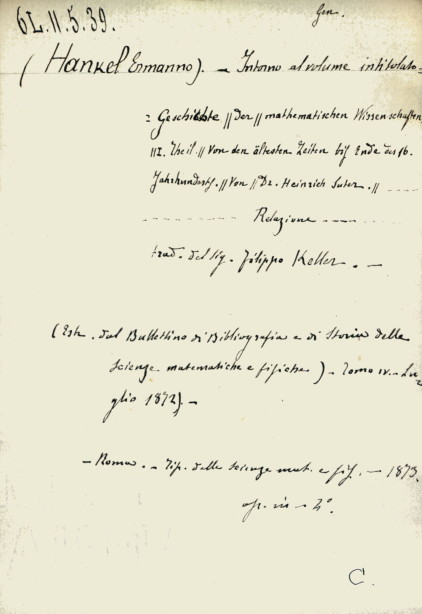 Gen.
6L.II.5.39.
(Hankel Ermanno). — Intorno al volume intitolato =
= Geschichte || der || mathematischen Wissenschaften
|| I. Theil || von den ältesten Zeiten bis Ende des 16.
Jahrhunderts. || Von || Dr. Heinrich Suter. ||
Relazione
trad. del Sig. Filippo Keller. —
(Estr. dal Bullettino di Bibliografia e di Storia delle
scienze matematiche e fisiche) — Tomo IV. — Lu-
glio 1872). —
— Roma. — Tip. delle scienze mat. e fis. — 1873.
op. in - 4°.
C.